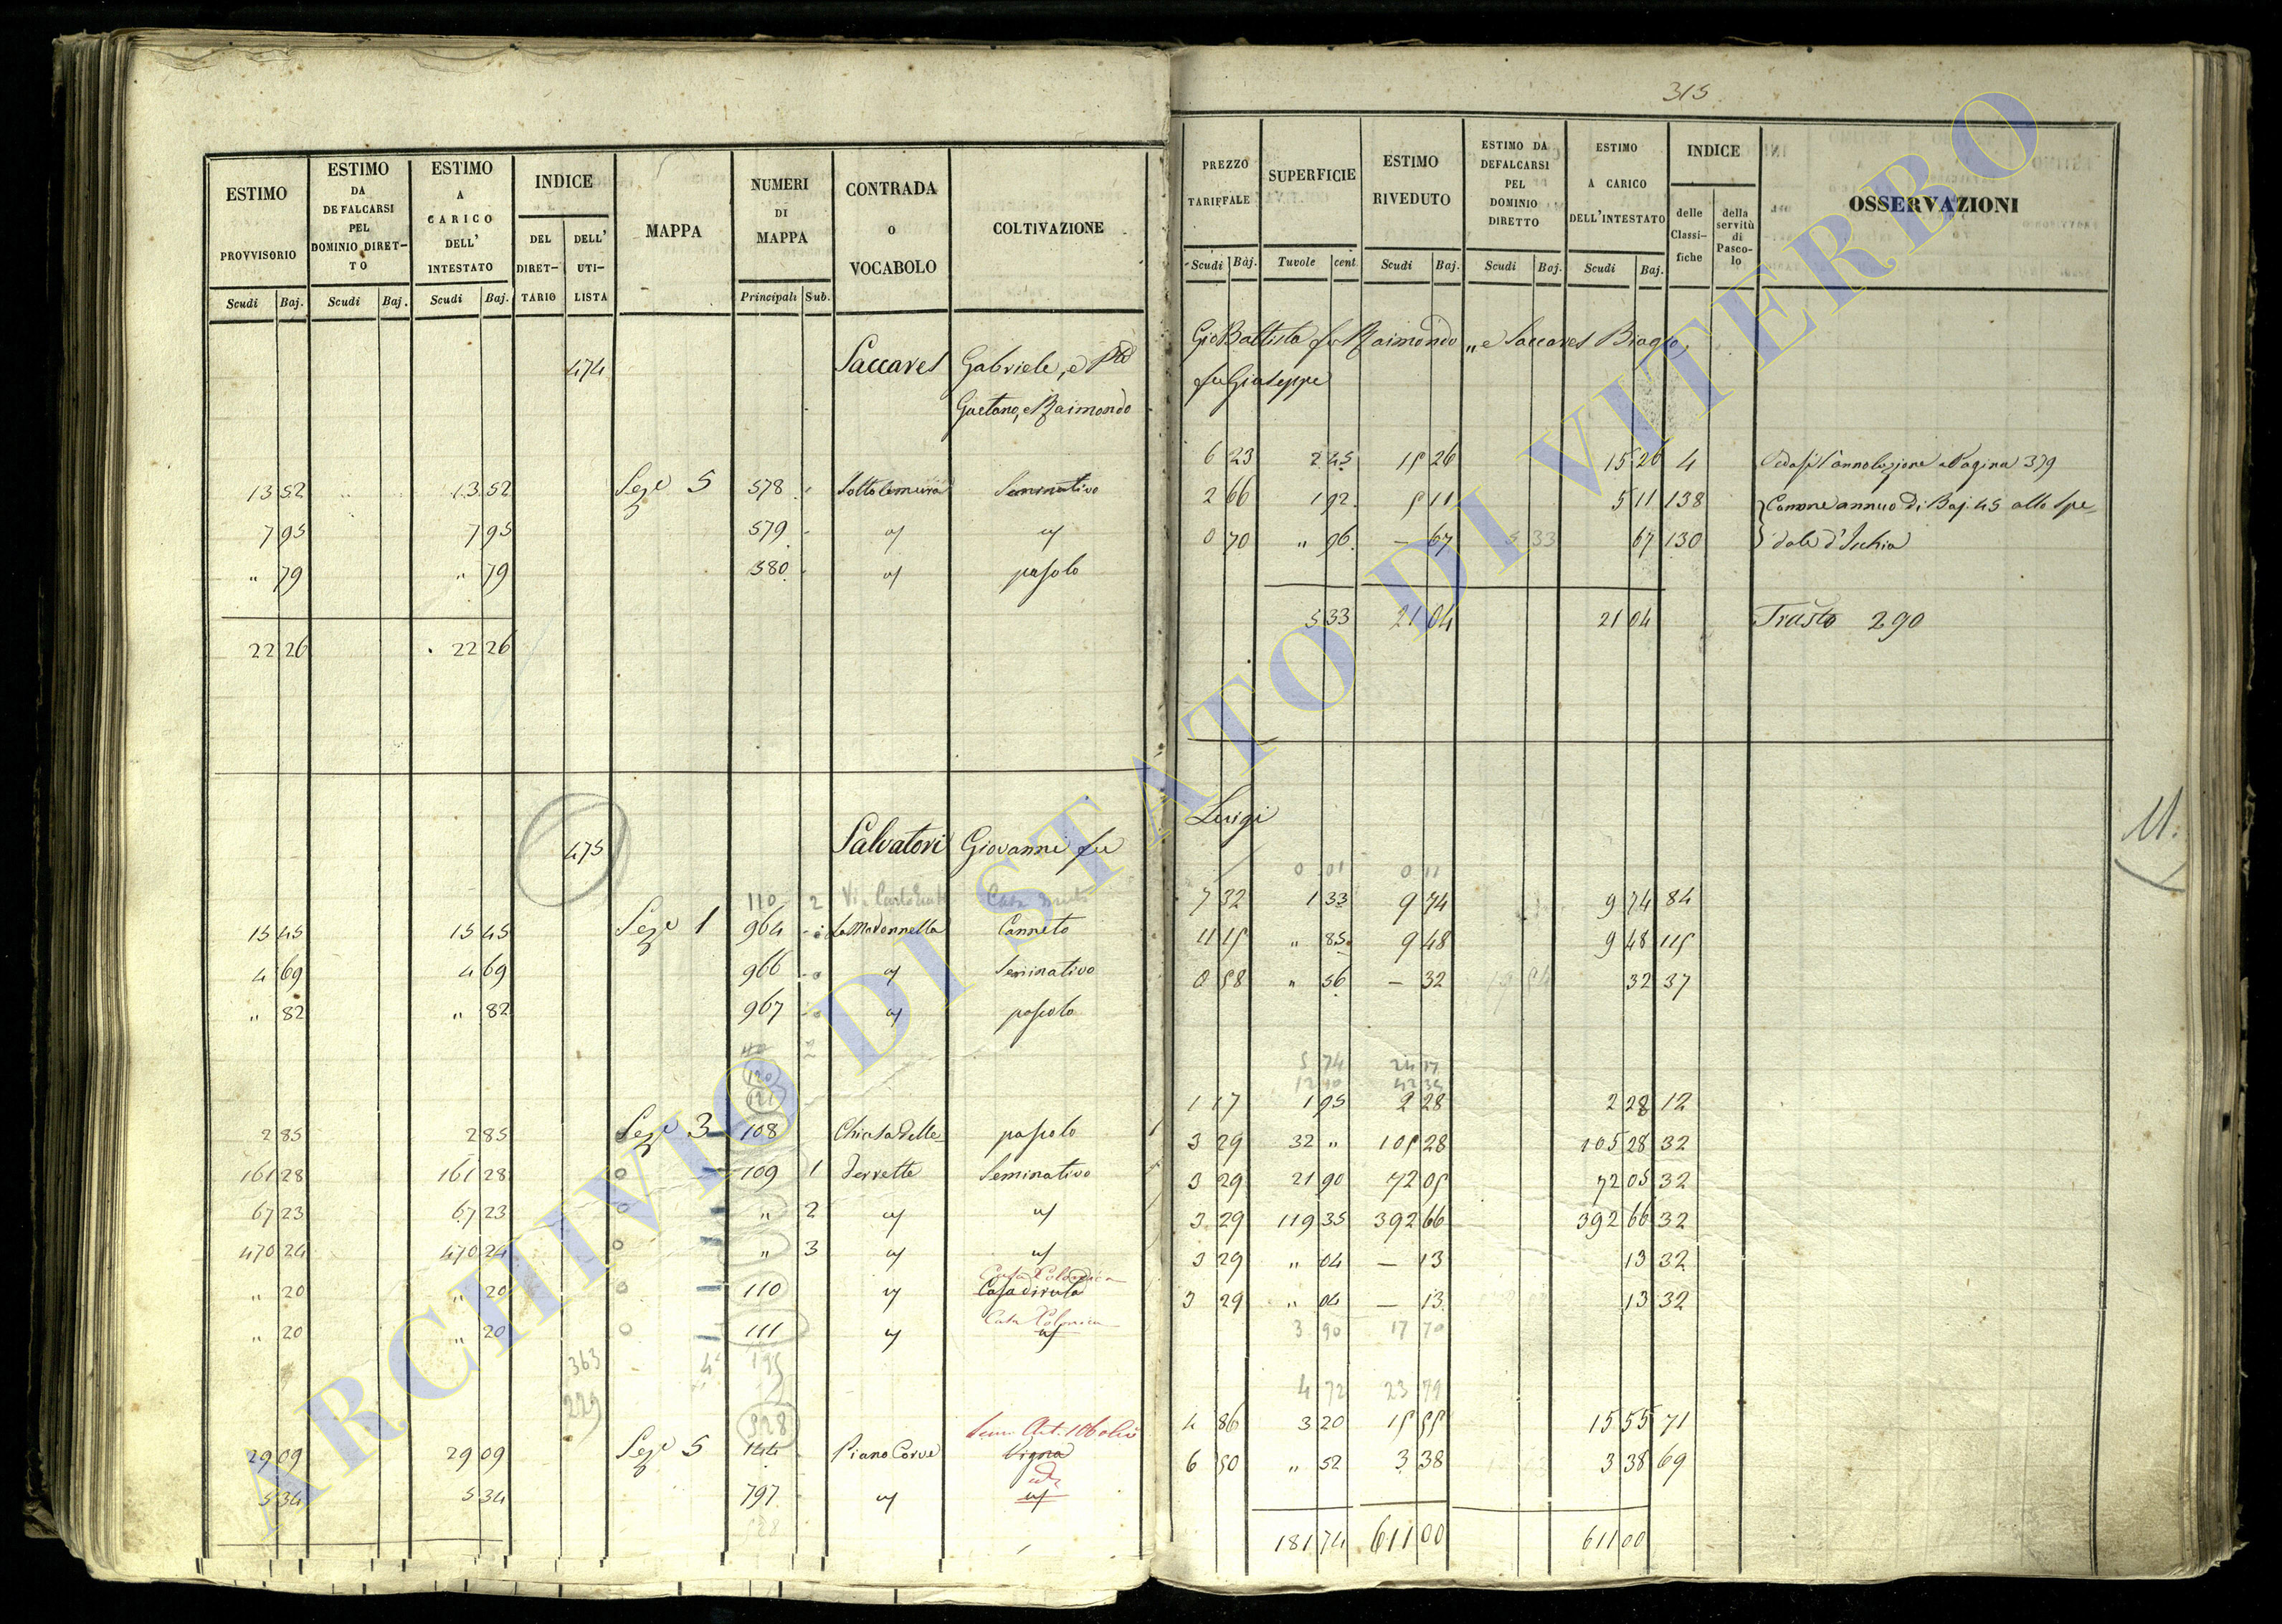 315
ESTIMO PROVVISORIO Scudi Baj.
ESTIMO DA DEFALCARSI PEL DOMINIO DIRETTO Scudi Baj.
ESTIMO A CARICO DELL' INTESTATO Scudi Baj.
INDICE DEL DIRETTARIO DELL' UTILISTA
MAPPA
NUMERI DI MAPPA Principali Sub.
CONTRADA O VOCABOLO
COLTIVAZIONE
PREZZO TARIFFALE Scudi Baj.
SUPERFICIE Tavole cent.
ESTIMO RIVEDUTO Scudi Baj.
ESTIMO DA DEFALCARSI PEL DOMINIO DIRETTO Scudi Baj.
ESTIMO A CARICO DELL'INTESTATO Scudi Baj.
INDICE delle Classifiche della servitù di Pascolo
OSSERVAZIONI
474 Saccares Gabriele, e
Gio Battista fu Raimondo „ e Saccares Biagio
Gaetano, e Raimondo
fu Giuseppe
13 52 13 52 Sez.e 5 578 Sottolemura Seminativo 6 23 2 45 15 26 15 26 4 Vedasi l'annotazione a Pagina 379
7 95 7 95 579 id id 2 66 1 92 5 11 5 11 138 Canone annuo di Baj. 45 allo Spe=
„ 79 „ 79 580 id pascolo 0 70 „ 96 — 67 5 33 67 130 dale d'Ischia
22 26 22 26 5 33 21 04 21 04 Trasto 290
475 Salvatori Giovanni fu Luigi
M.
110 2 0 01 0 11
15 45 15 45 Sez.e 1 964 La Madonnella Canneto 7 32 1 33 9 74 9 74 84
4 69 4 69 966 id Seminativo 11 15 „ 85 9 48 9 48 115
„ 82 „ 82 967 id pascolo 0 58 „ 56 — 32 32 37
120 5 74
121 12 10
2 85 2 85 Sez.e 3 108 Chiusa delle pascolo 1 17 1 95 2 28 2 28 12
161 28 161 28 109 1 Ferrette Seminativo 3 29 32 „ 105 28 105 28 32
67 23 67 23 „ 2 id id 3 29 21 90 72 05 72 05 32
470 24 470 24 „ 3 id id 3 29 119 35 392 66 392 66 32
Casa Colonica
„ 20 „ 20 110 id Casa diruta 3 29 „ 04 — 13 13 32
Casa Colonica
„ 20 „ 20 111 id id 3 29 „ 04 — 13 13 32
363 4 195 3 90 17 70
229 328 4 72 23 79
29 09 29 09 Sez.e 5 144 Piano Corve Vigna 4 86 3 20 15 55 15 55 71
5 34 5 34 797 id id 6 50 „ 52 3 38 3 38 69
181 74 611 00 611 00
ARCHIVIO DI STATO DI VITERBO